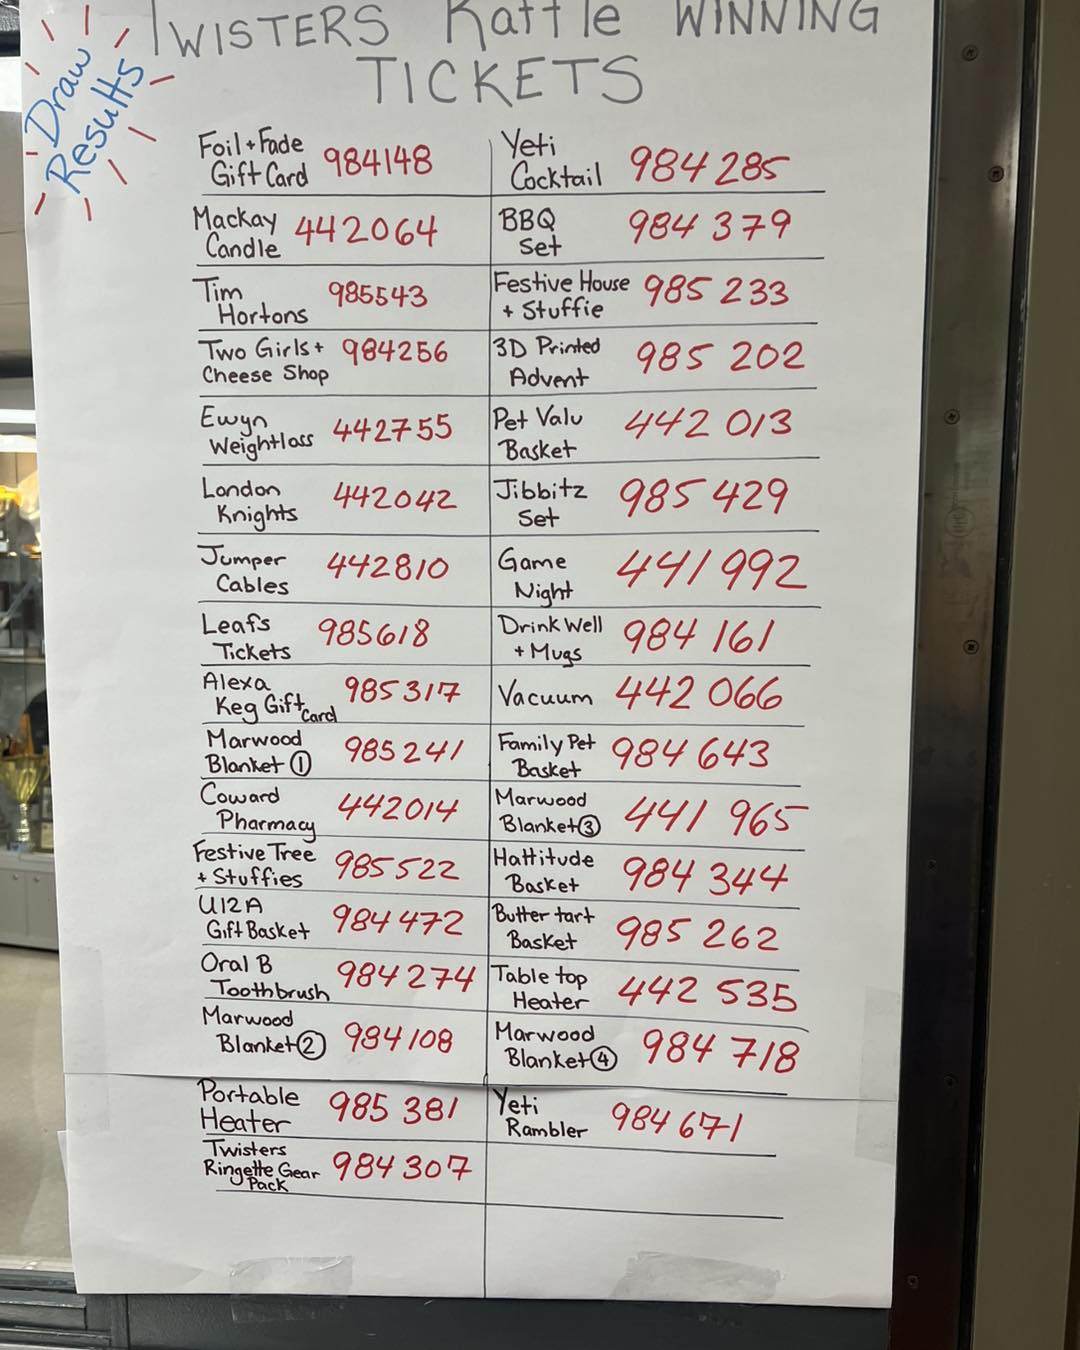 Draw
Results
TWISTERS Raffle WINNING
TICKETS
Foil + Fade
Gift Card 984148
Mackay
Candle 442064
Tim
Hortons 985543
Two Girls +
Cheese Shop 984256
Ewyn
Weightloss 442755
London
Knights 442042
Jumper
Cables 442810
Leafs
Tickets 985618
Alexa
Keg Gift Card 985317
Marwood
Blanket ① 985241
Coward
Pharmacy 442014
Festive Tree
+ Stuffies 985522
U12A
Gift Basket 984472
Oral B
Toothbrush 984274
Marwood
Blanket ② 984108
Portable
Heater 985381
Twisters
Ringette Gear
Pack 984307
Yeti
Cocktail 984285
BBQ
Set 984379
Festive House
+ Stuffie 985233
3D Printed
Advent 985202
Pet Valu
Basket 442013
Jibbitz
Set 985429
Game
Night 441992
Drink Well
+ Mugs 984161
Vacuum 442066
Family Pet
Basket 984643
Marwood
Blanket ③ 441965
Hattitude
Basket 984344
Butter tart
Basket 985262
Table top
Heater 442535
Marwood
Blanket ④ 984718
Yeti
Rambler 984671